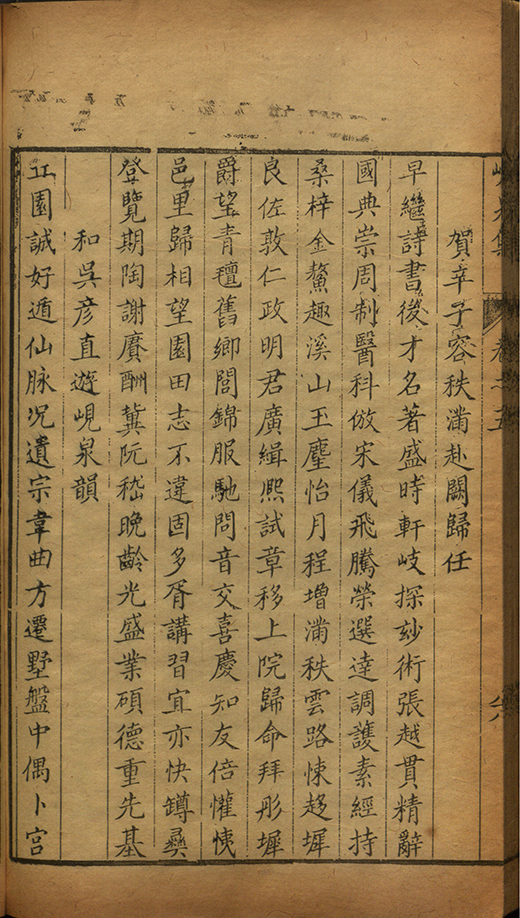 峴泉集 卷之五 八
賀辛子容秩滿赴闕歸任
早繼詩書後才名著盛時軒岐探玅術張越貫精辭
國典崇周制醫科倣宋儀飛騰榮選達調護素經持
桑梓金鰲趣溪山玉麈怡月程增滿秩雲路悚趍墀
良佐敦仁政明君廣緝熙試章移上院歸命拜彤墀
爵望青氊舊鄉閭錦服馳問音交喜慶知友倍懽恞
邑里歸相望園田志不違固多胥講習宜亦快罇彝
登覽期陶謝賡酬冀阮嵇晚齡光盛業碩德重先基
和吳彦直遊峴泉韻
丘園誠好遁仙脉况遺宗韋曲方遷墅盤中偶卜宫